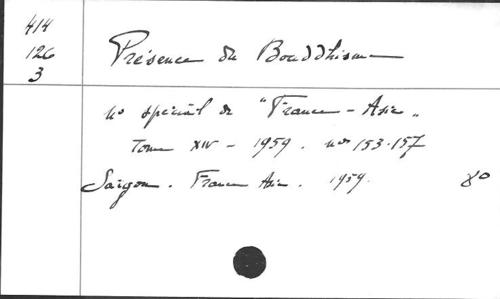 414
126
3
Présence du Bouddhisme
n° spécial de "France-Asie"
Tome XIV - 1959. nos 153-157
Saigon. France Asie. 1959. 8°